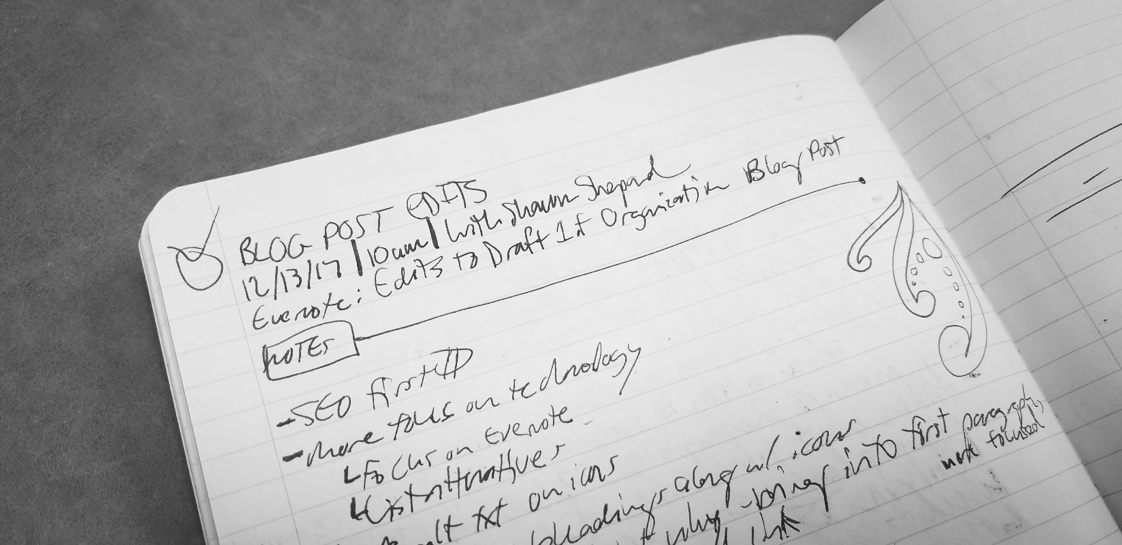 BLOG POST EDITS
12/13/17 | 10am | with Shawn Shepard
Evernote: Edits to Draft 1 of Organization Blog Post
NOTES
- SEO first
- more focus on technology
Focus on Evernote
List Alternatives
alt txt on icons
headings along w/ icons
why - bring into first paragraph,
more focused